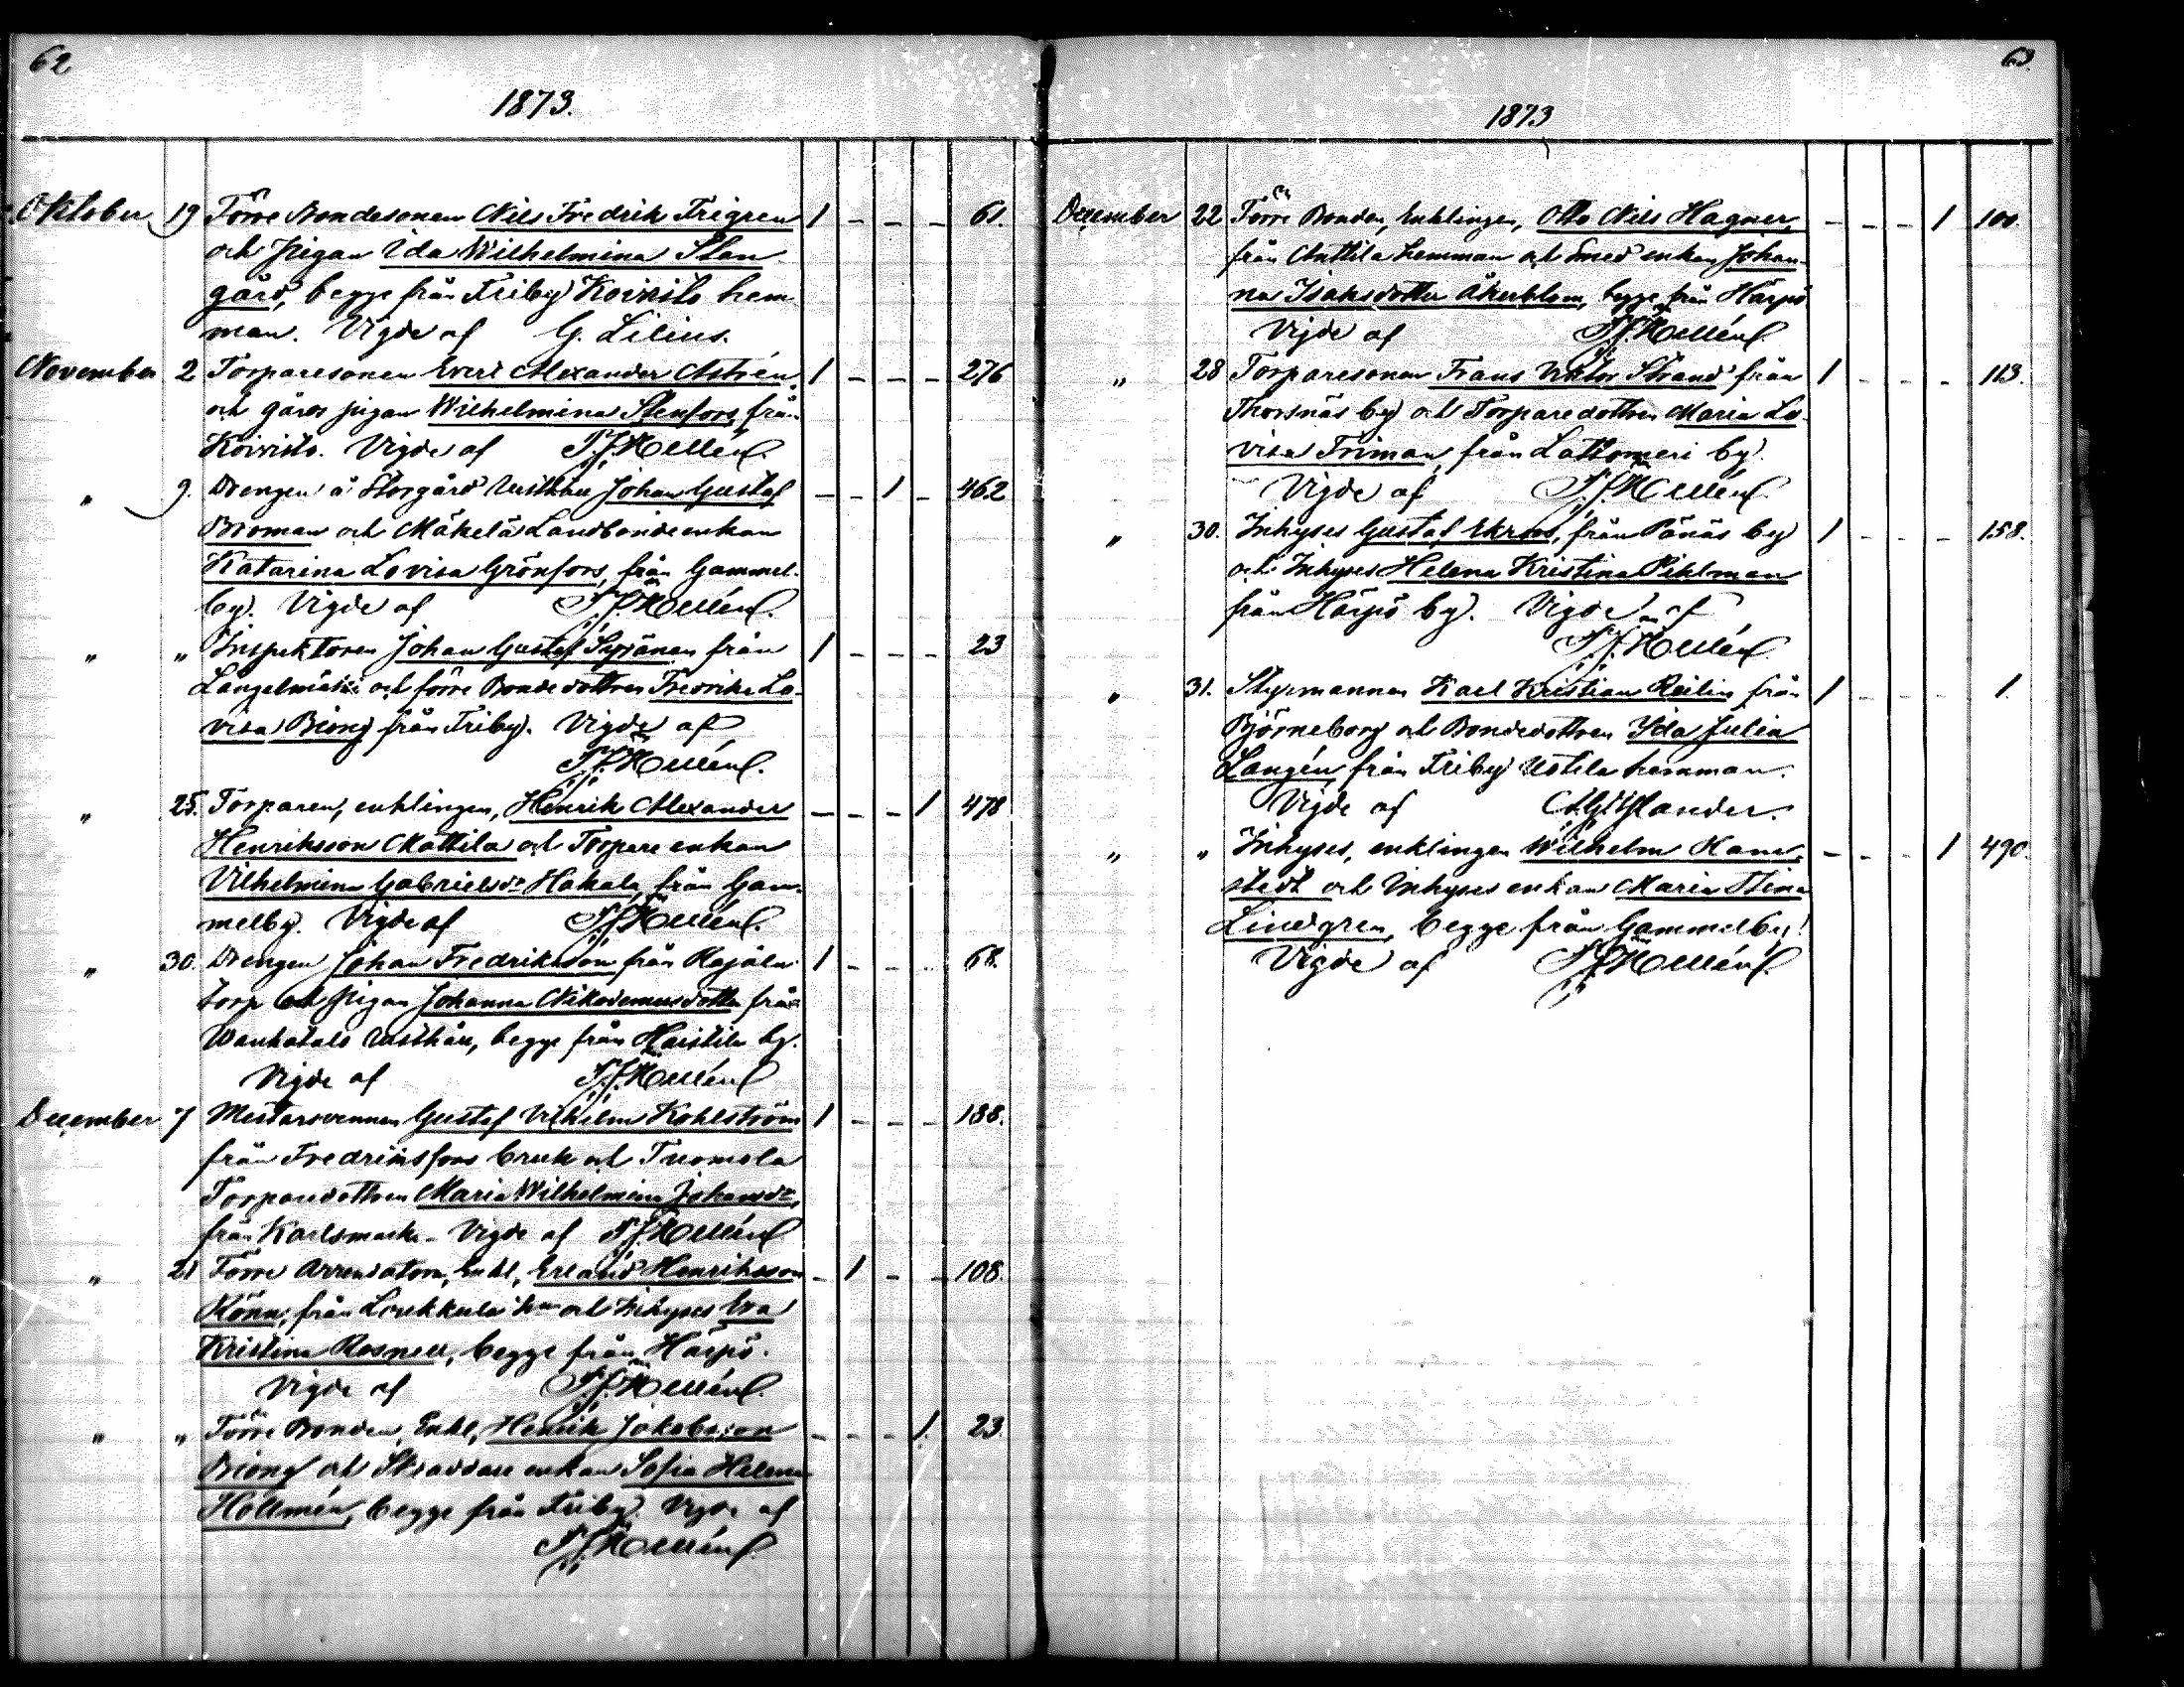 62
1873.
Oktober 19 Förre Bondesonen Nils Fredrik Frigren 1 - - - 61.
och pigan Ida Wilhelmina Stan-
gård, begge från Friby Koivisto hem-
man. Vigde af G. Lilius.
November 2 Torparesonen Evert Alexander Astrén, 1 - - - 276
och gårds pigan Wilhelmina Stenfors, från
Koivisto. Vigde af
" 9. Drengen å Storgård Johan Gustaf - - 1 - 462
Broman och Mäkelä Landbondeenkan
Katarina Lovisa Grönfors, från Gammel-
by. Vigde af
" " Inspektoren Johan Gustaf Syrjänen från 1 - - - 23
Längelmäki och förre Bondedottren Fredrika Lo-
visa Biong från Friby. Vigde af
" 25. Torparen, enklingen, Henrik Alexander - - - 1 478
Henriksson Mattila och Torpare enkan
Vilhelmina Gabrielsdr Hakala, från Gam-
melby. Vigde af
" 30. Drengen Johan Fredriksson från Rajala 1 - - - 68.
torp och pigan Johanna Nikodemusdotter från
Wanhatalo, begge från Haistila by.
Vigde af
December 7 Mestarsvennen Gustaf Vilhelm Kohlström 1 - - - 188.
från Fredriksfors bruk och Tuomola
Torparedottren Maria Wilhelmina Johansdr,
från Karlsmark. Vigde af
" 21 Förre Arrendatorn, Enkl, Erland Henriksson - 1 - - 108.
Könn, från Loukkula hmn och Inhyses Eva
Kristina Rosnell, begge från Härpö.
Vigde af
" " Förre Bonden, Enkl, Henrik Jakobsson - - - 1. 23.
Biong och Skräddare enkan Sofia Helena
Hollmén, begge från Friby. Vigde af
63.
1873
December 22 Förre Bonden, Enklingen, Otto Nils Hagner, - - - 1 100.
från Anttila hemman och Smed enkan Johan-
na Isaksdotter Åkerblom, begge från Härpö
Vigde af
" 28 Torparesonen Frans Viktor Strand från 1 - - - 113.
Thorsnäs by och Torparedottren Maria Lo-
visa Friman, från Lattomeri by.
Vigde af
" 30. Inhyses Gustaf Ekroos, från Pånäs by 1 - - - 158.
och Inhyses Helena Kristina Pihlman
från Härpö by. Vigde af
" 31. Styrmannen Karl Kristian Reilin från 1 - - - 1.
Björneborg och Bondedottren Ida Julia
Langén, från Friby Ustila hemman.
Vigde af
" " Inhyses, enklingen Wilhelm Ham- - - - 1 490.
stedt och Inhyses enkan Maria Stina
Lindgren, begge från Gammelby.
Vigde af